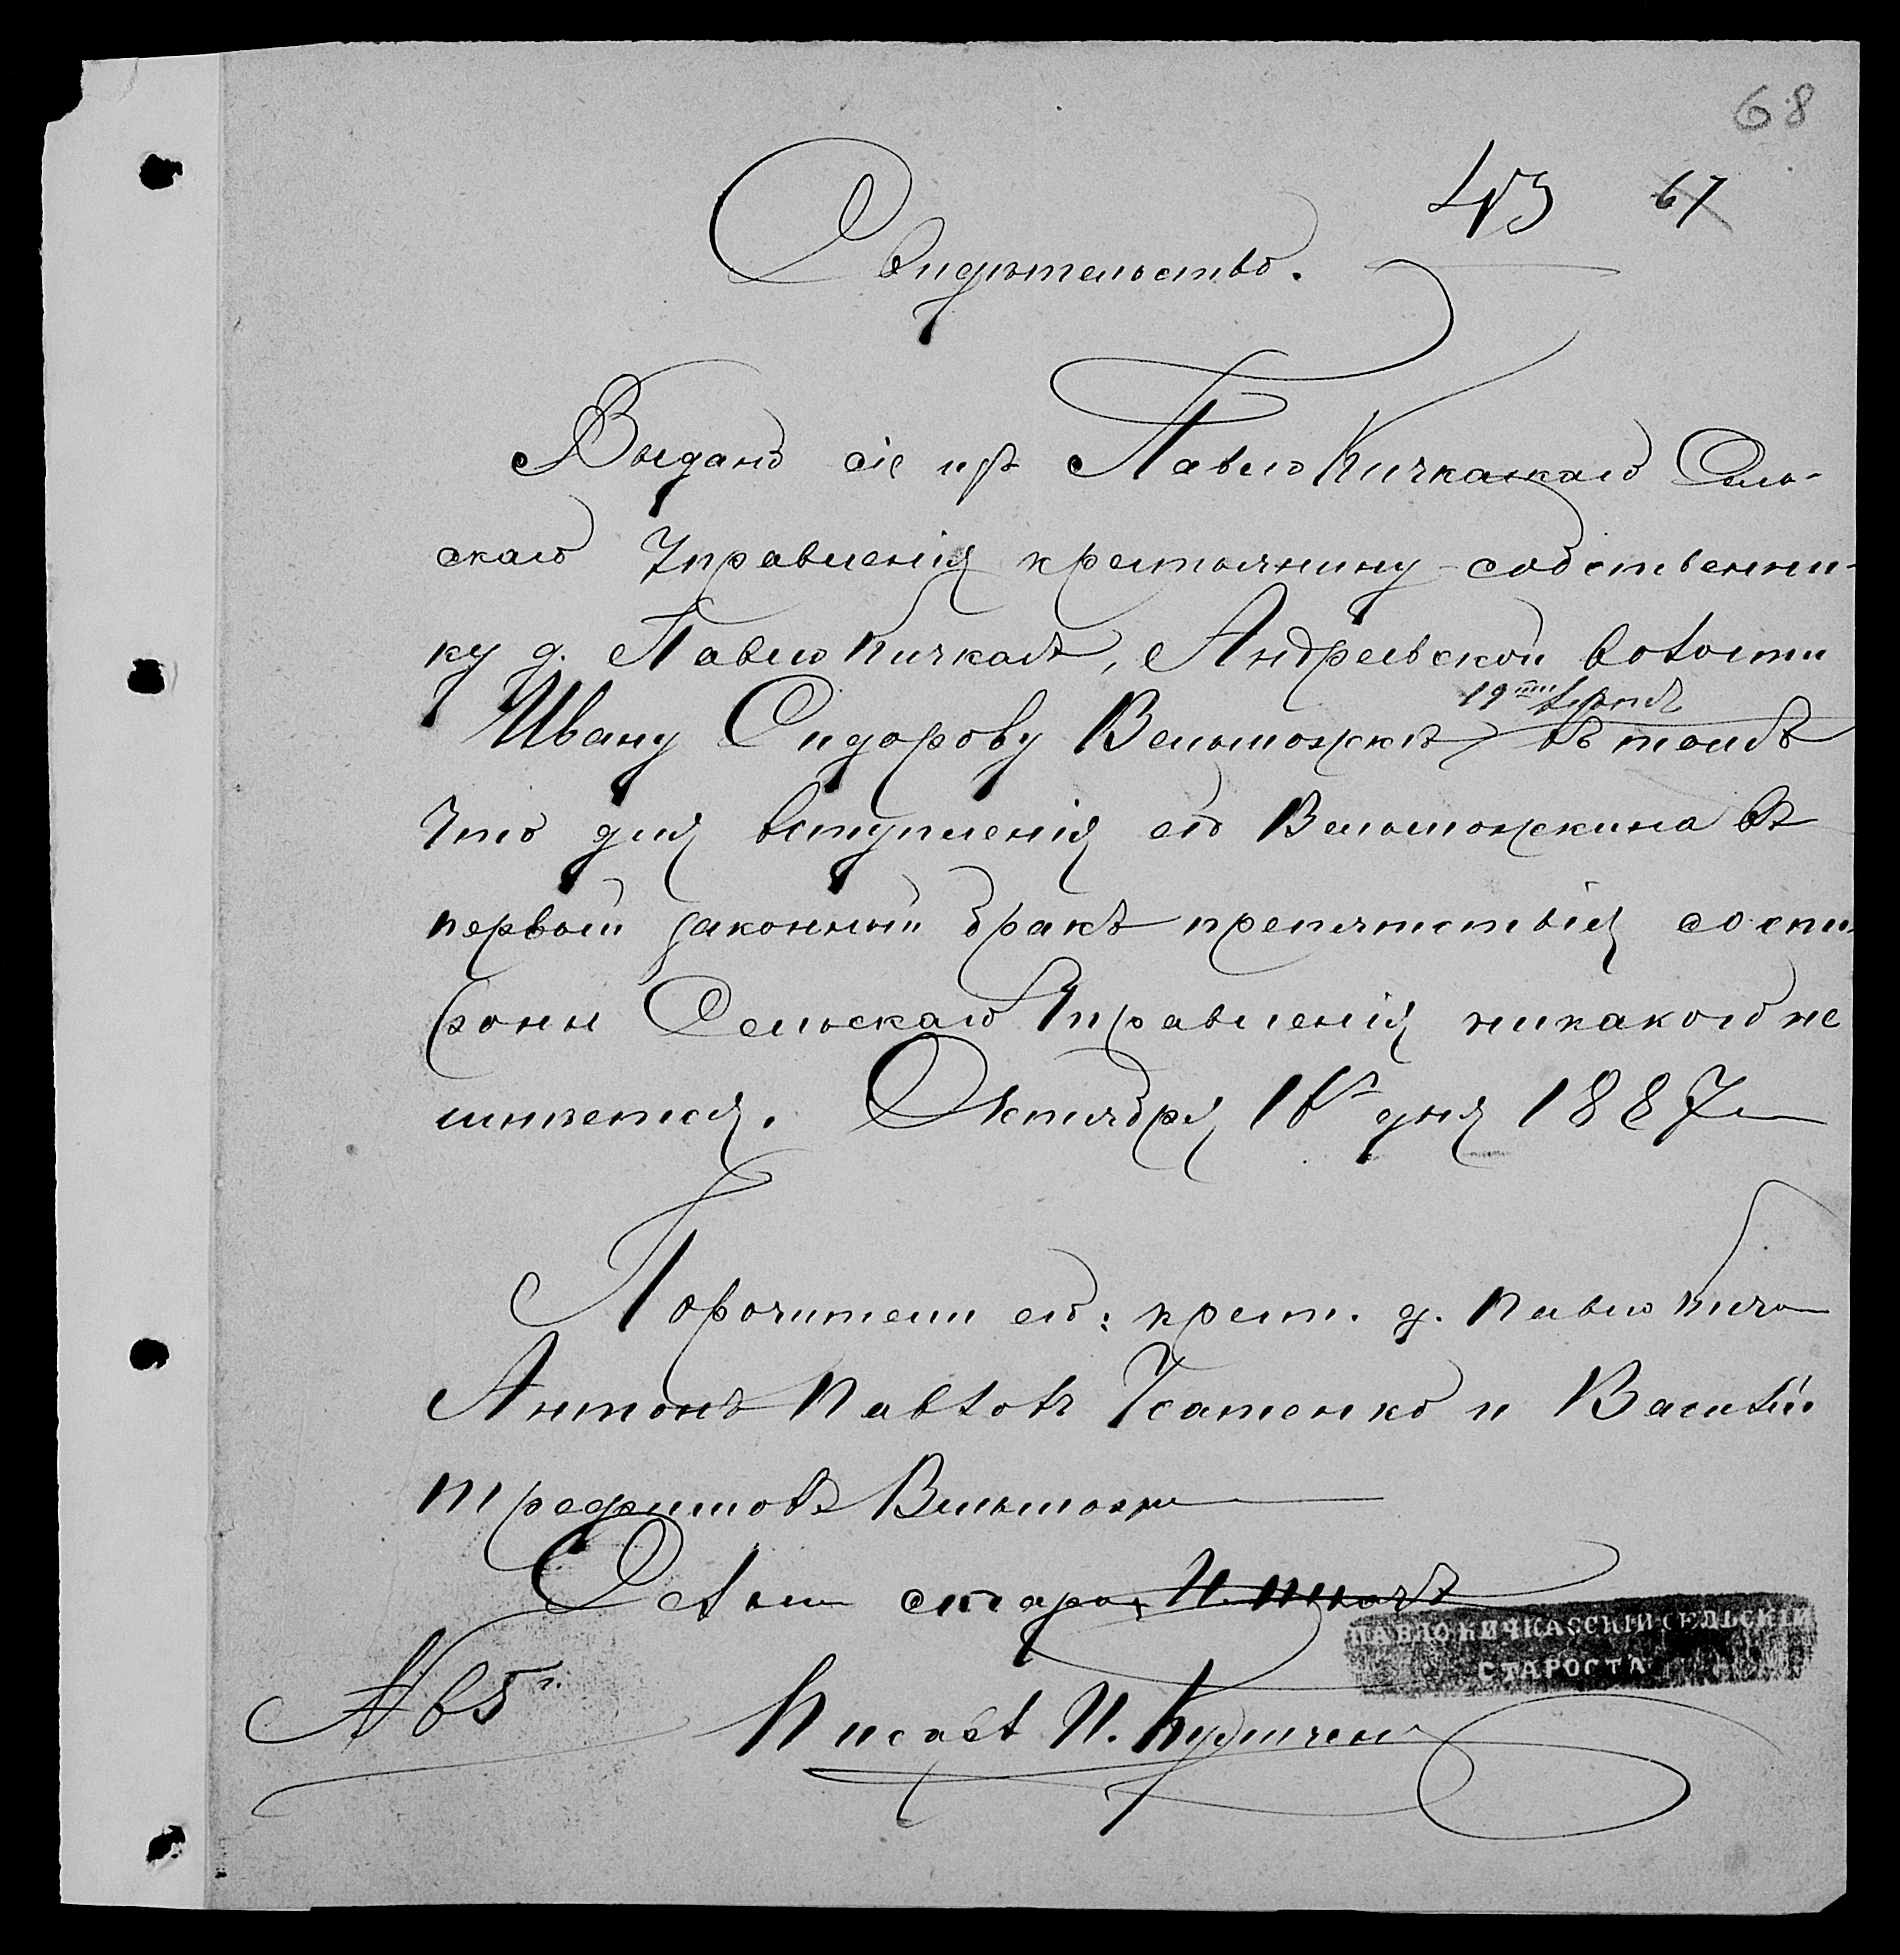 68
43 67
Свидѣтельство.
Выдано сіе изъ Павло Кичкаскаго Сель-
скаго Управленія крестьянину-собственни-
ку д. Павло Кичкасъ, Андреевской волости
19ти лѣтъ
Ивану Сидорову Вельможкѣ въ томъ
что для вступленія его Вельможкина въ
первый законный бракъ препятствія со сто
роны Сельскаго Управленія никакого не
имѣется. Октября 16го дня 1887 г
Поручители его: крест. д. Павло Кичк
Антонъ Павловъ Исатенко и Василій
Трофимовъ Вельмож
Сельск старо И.
ПАВЛОКИЧКАССКІЙ СЕЛЬСКІЙ
СТАРОСТА
№ 65
Писалъ И.